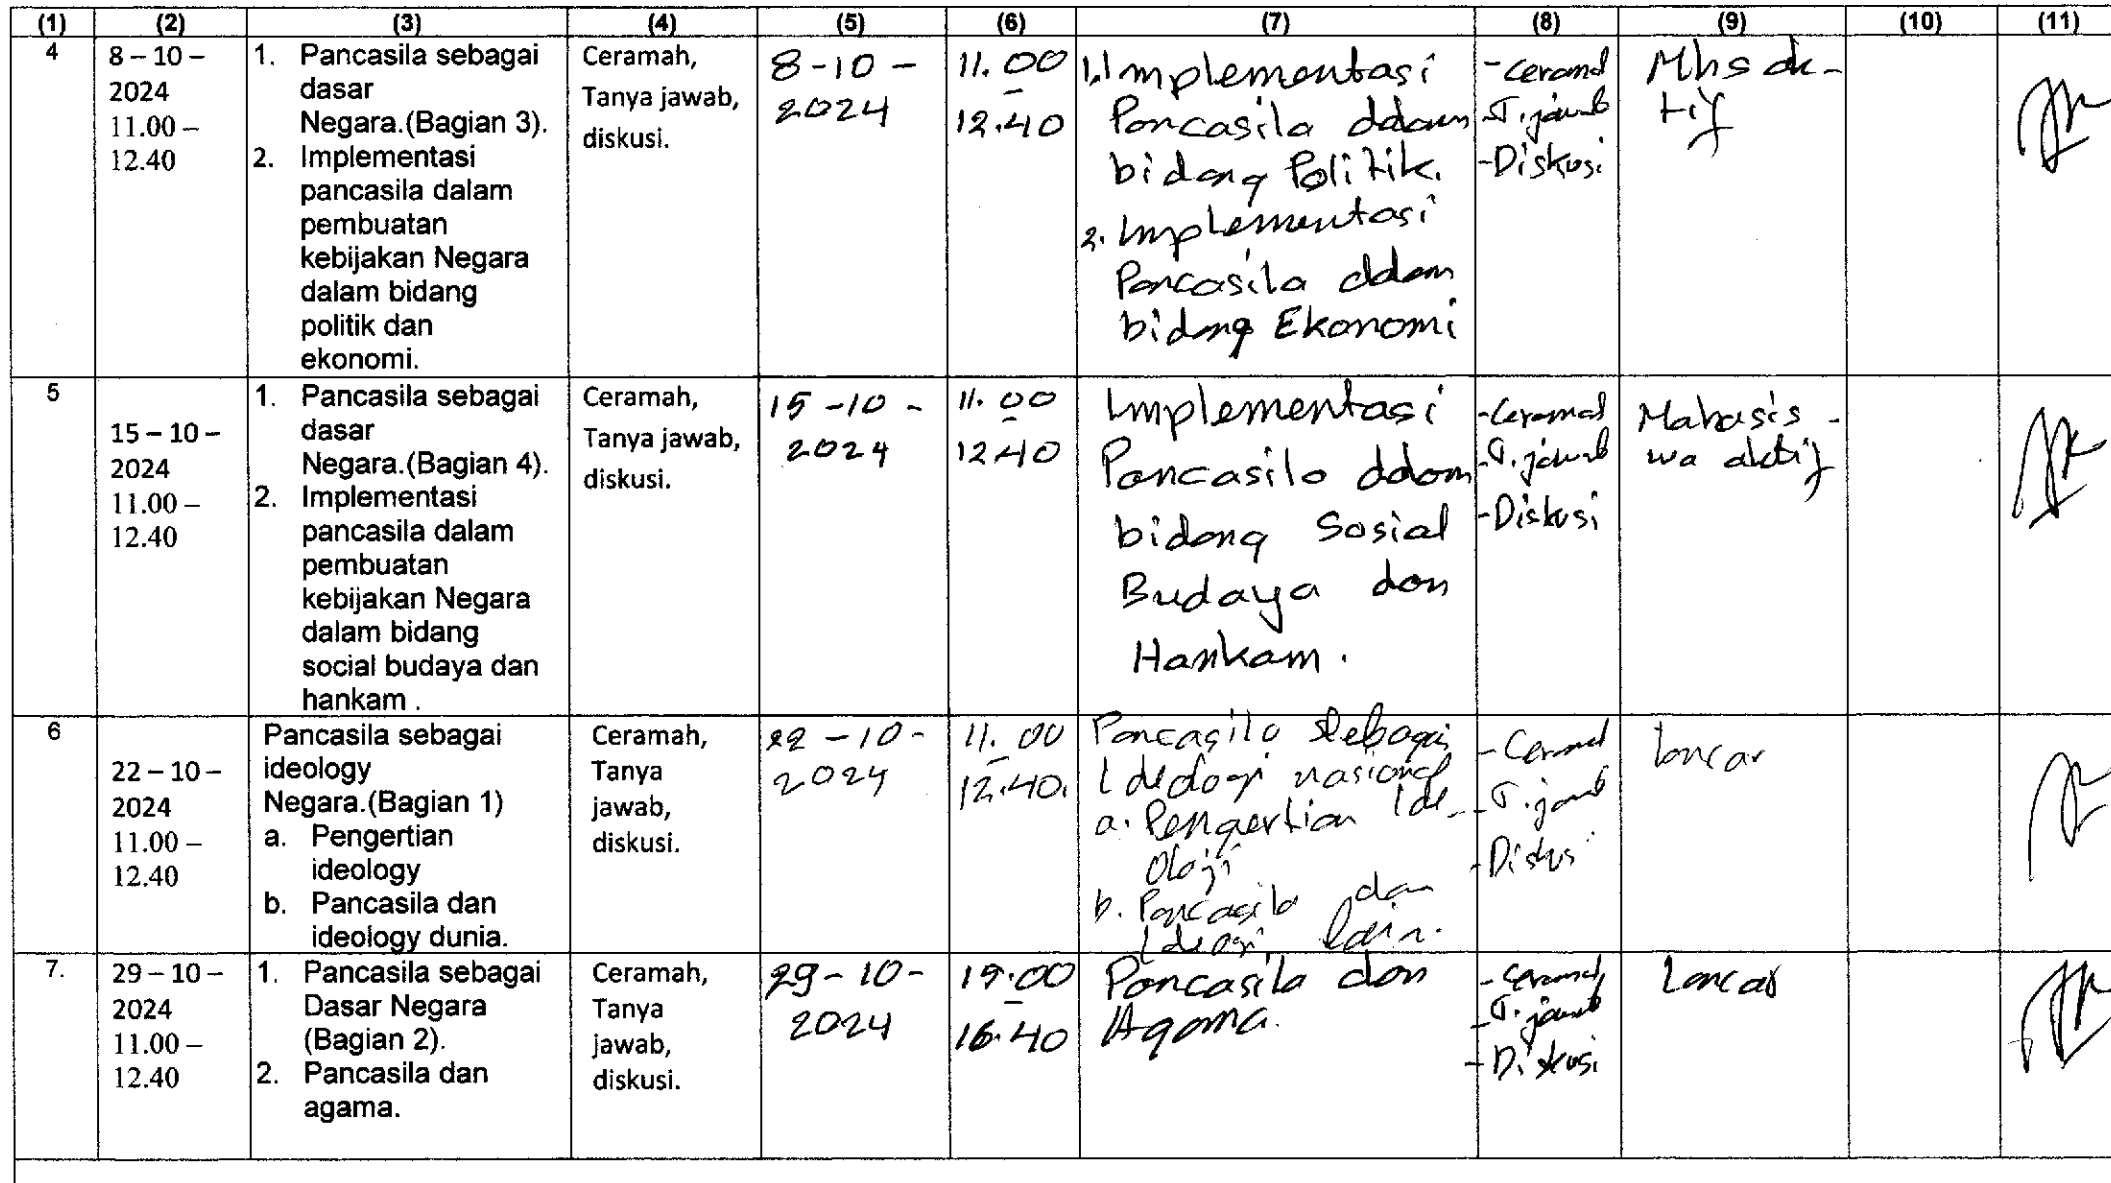 (1) (2) (3) (4) (5) (6) (7) (8) (9) (10) (11)
4
8 – 10 –
2024
11.00 –
12.40
1. Pancasila sebagai
dasar
Negara.(Bagian 3).
2. Implementasi
pancasila dalam
pembuatan
kebijakan Negara
dalam bidang
politik dan
ekonomi.
Ceramah,
Tanya jawab,
diskusi.
8-10-
2024
11.00
–
12.40
1. Implementasi
Pancasila dalam
bidang Politik.
2. Implementasi
Pancasila dalam
bidang Ekonomi
- Ceramah
- T. jawab
- Diskusi
Mhs ak-
tif
5
15 – 10 –
2024
11.00 –
12.40
1. Pancasila sebagai
dasar
Negara.(Bagian 4).
2. Implementasi
pancasila dalam
pembuatan
kebijakan Negara
dalam bidang
social budaya dan
hankam .
Ceramah,
Tanya jawab,
diskusi.
15-10-
2024
11.00
–
12.40
Implementasi
Pancasila dalam
bidang Sosial
Budaya dan
Hankam.
- Ceramah
- T. jawab
- Diskusi
Mahasis-
wa aktif
6
22 – 10 –
2024
11.00 –
12.40
Pancasila sebagai
ideology
Negara.(Bagian 1)
a. Pengertian
ideology
b. Pancasila dan
ideology dunia.
Ceramah,
Tanya
jawab,
diskusi.
22-10-
2024
11.00
–
12.40.
Pancasila sebagai
Ideologi nasional
a. Pengertian Ide-
ologi
b. Pancasila dan
Ideologi lain.
- Ceramah
- T. jawab
- Diskusi
lancar
7.
29 – 10 –
2024
11.00 –
12.40
1. Pancasila sebagai
Dasar Negara
(Bagian 2).
2. Pancasila dan
agama.
Ceramah,
Tanya
jawab,
diskusi.
29-10-
2024
–
16.40
Pancasila dan
Agama.
- Ceramah
- T. jawab
- Diskusi
Lancar